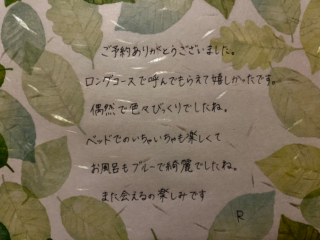 ご予約ありがとうございました。
ロングコースで呼んでもらえて嬉しかったです。
偶然で色々びっくりでしたね。
ベッドでのいちゃいちゃも楽しくて
お風呂もブルーで綺麗でしたね。
また会えるの楽しみです
R